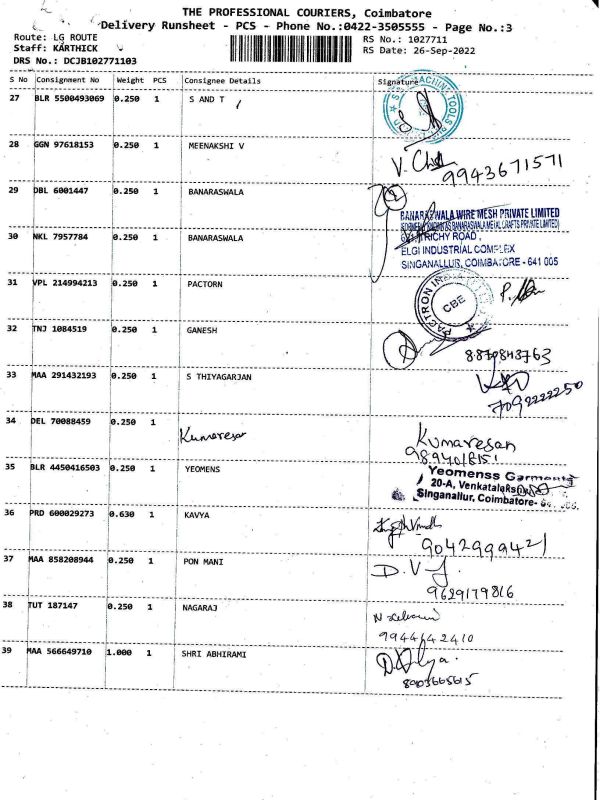 THE PROFESSIONAL COURIERS, Coimbatore
Delivery Runsheet - PCS - Phone No.:0422-3505555 - Page No.:3
Route: LG ROUTE
RS No.: 1027711
Staff: KARTHICK
RS Date: 26-Sep-2022
DRS No.: DCJB102771103
S No Consignment No Weight PCS Consignee Details Signature
27 BLR 5500493069 0.250 1 S AND T
28 GGN 97618153 0.250 1 MEENAKSHI V
9943671571
29 DBL 6001447 0.250 1 BANARASWALA
BANARASWALA WIRE MESH PRIVATE LIMITED
30 NKL 7957784 0.250 1 BANARASWALA
TRICHY ROAD,
ELGI INDUSTRIAL COMPLEX
SINGANALLUR, COIMBATORE - 641 005
31 VPL 214994213 0.250 1 PACTORN
PACTRON INDIA
CBE
32 TNJ 1084519 0.250 1 GANESH
8870843763
33 MAA 291432193 0.250 1 S THIYAGARJAN
7092222250
34 DEL 70088459 0.250 1 Kumaresan
Kumaresan
9894018151
35 BLR 4450416503 0.250 1 YEOMENS
Yeomenss Garments
20-A,
Singanallur, Coimbatore-
36 PRD 600029273 0.630 1 KAVYA
9042999421
37 MAA 858208944 0.250 1 PON MANI
D. V
9629179816
38 TUT 187147 0.250 1 NAGARAJ
9944642410
39 MAA 566649710 1.000 1 SHRI ABHIRAMI
8903665615